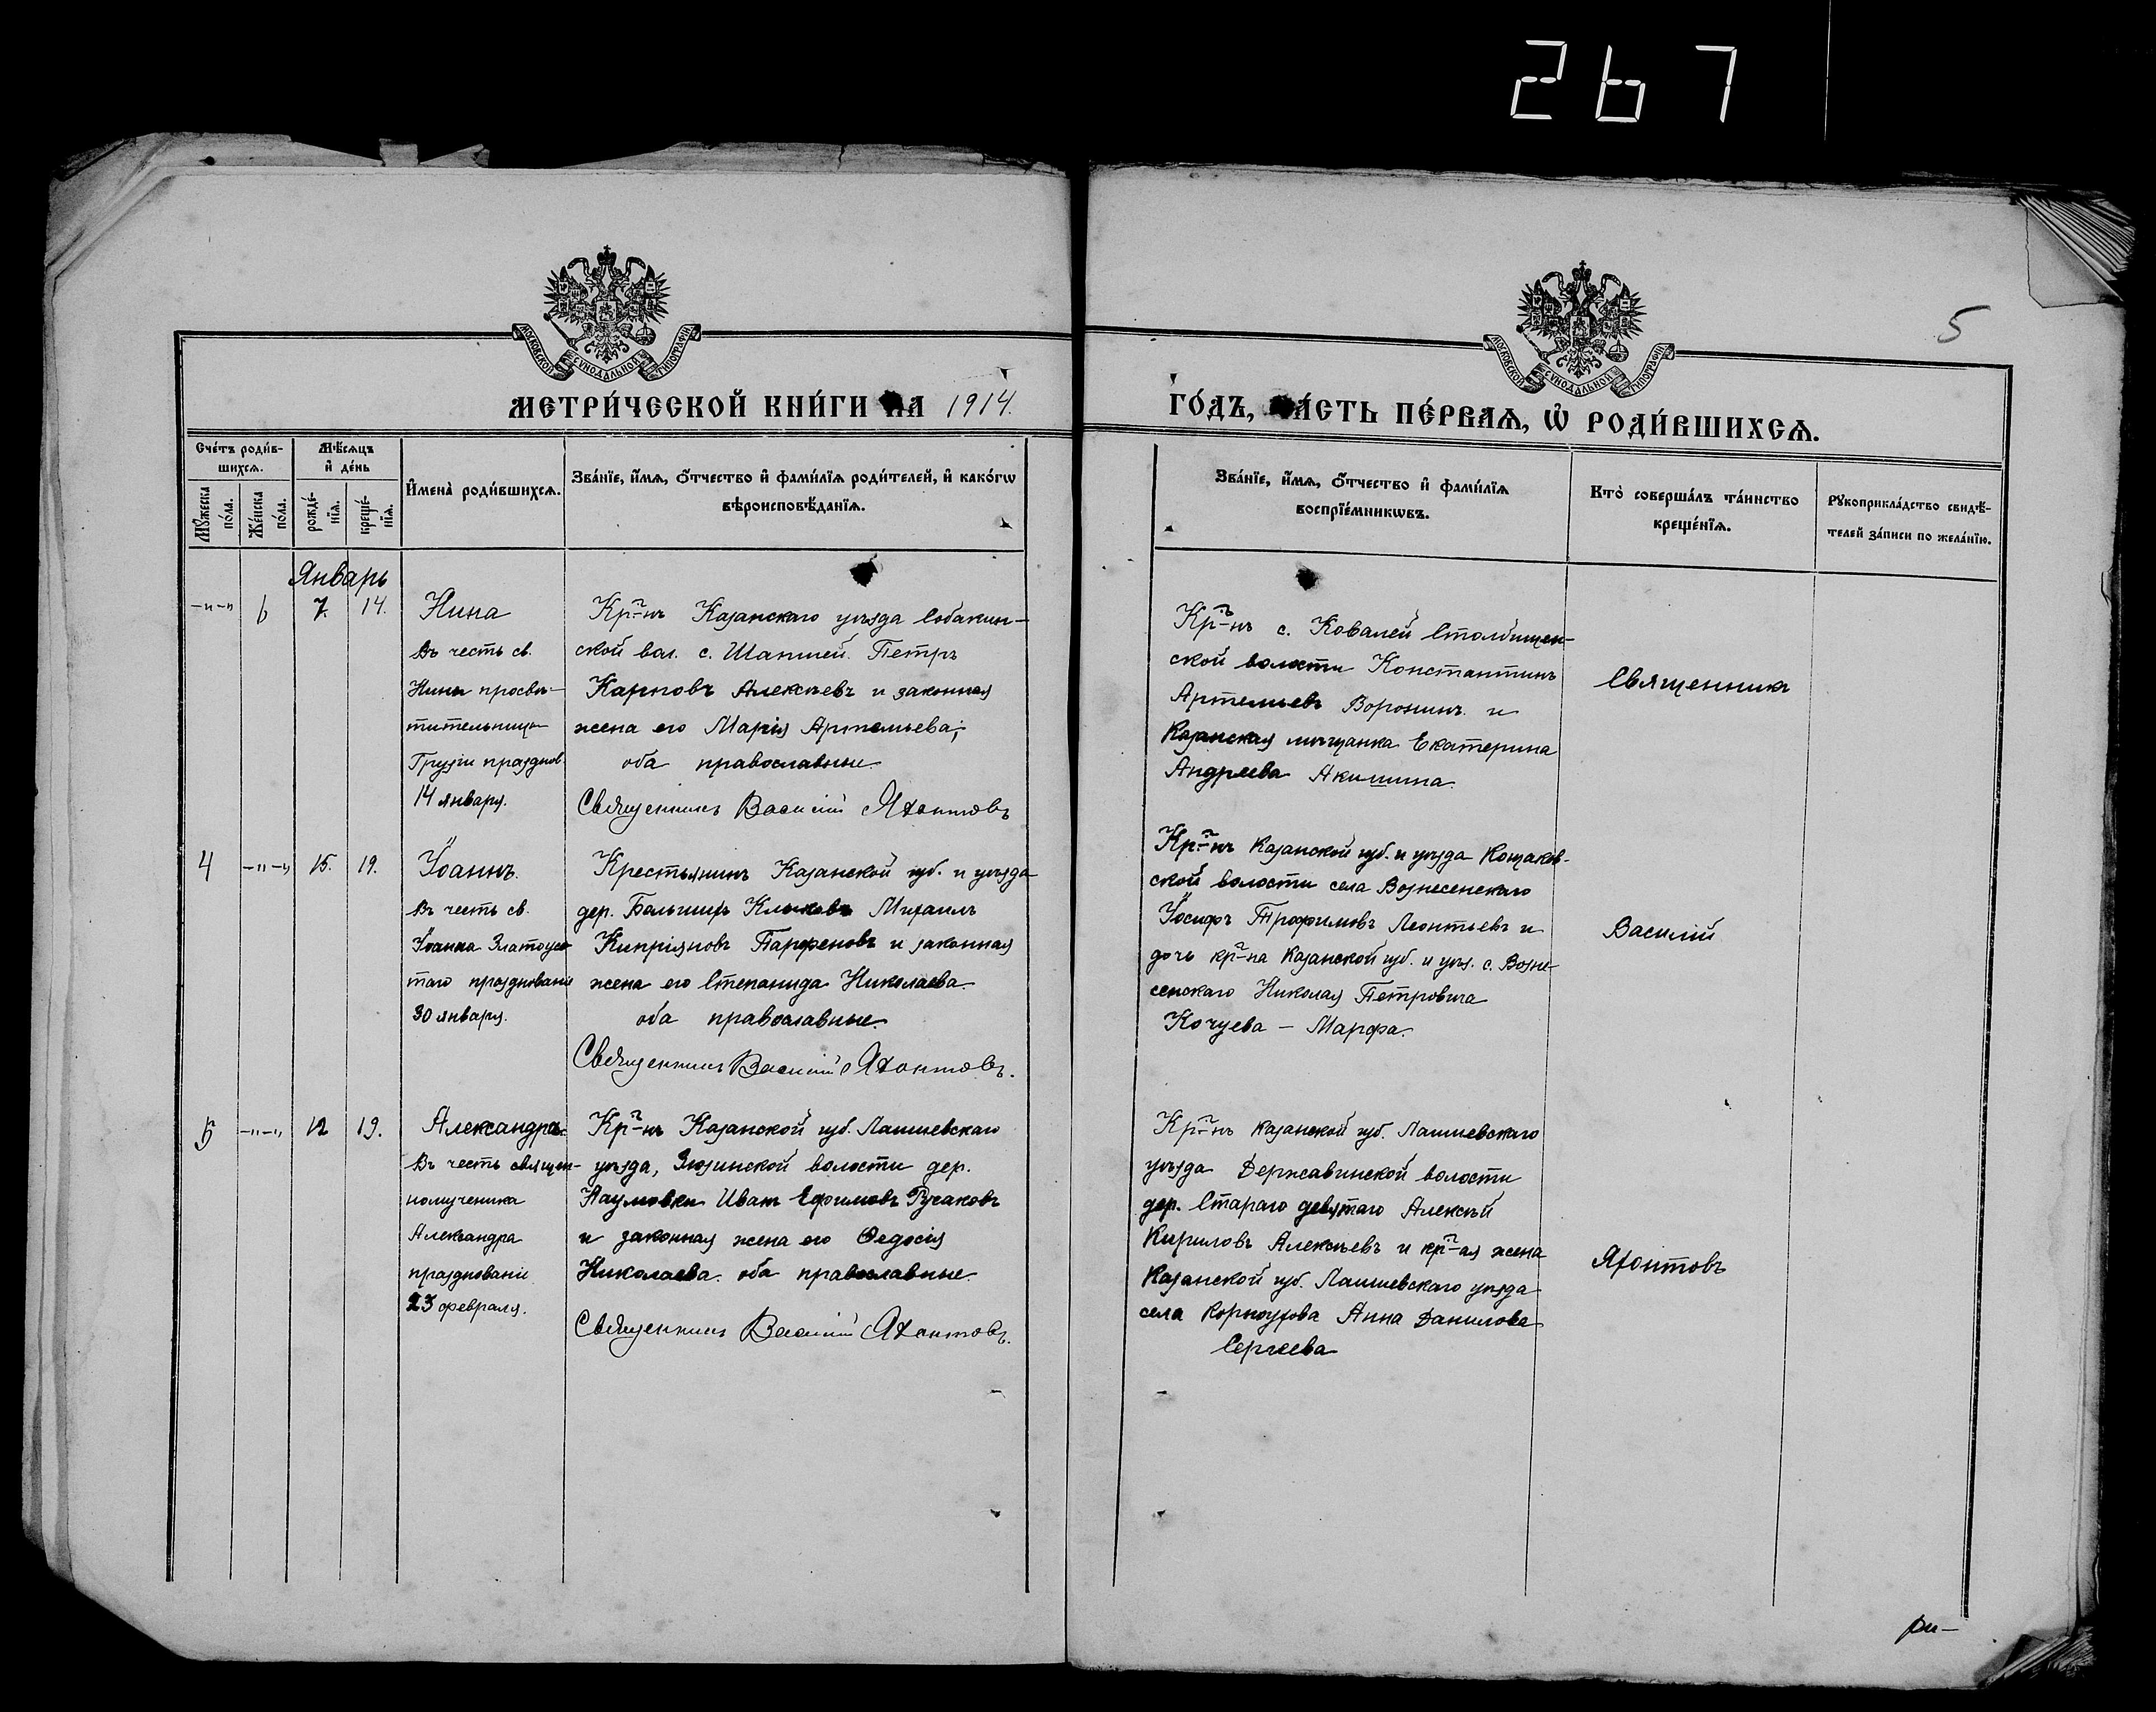 267
5
МОСКОВСКОЙ СѴНОДАЛЬНОЙ ТИПОГРАФІИ
МОСКОВСКОЙ СѴНОДАЛЬНОЙ ТИПОГРАФІИ
МЕТРИ́ЧЕСКОЙ КНИ́ГИ НА 1914.
ГО́ДЪ, ЧА́СТЬ ПЕ́РВАѦ, Ѡ҆ РОДИ́ВШИХСѦ.
Сче́тъ роди́в-
шихсѧ.
Мѣ́сѧцъ
и҆ де́нь
Мꙋ́жеска
по́ла.
Же́нска
по́ла.
рожде́-
нїѧ.
креще́-
нїѧ.
И҆мена̀ роди́вшихсѧ.
Зва́нїе, и҆́мѧ, ѻ҆́тчество и҆ фами́лїѧ роди́телей, и҆ како́гѡ
вѣроисповѣ́данїѧ.
Зва́нїе, и҆́мѧ, ѻ҆́тчество и҆ фами́лїѧ
воспрїе́мникѡвъ.
Кто̀ соверша́лъ та́инство
креще́нїѧ.
Рꙋкоприкла́дство свидѣ́-
телей за́писи по жела́нїю.
Январь
-"-" 6 7. 14.
Нина
Въ честь св.
Нины просвѣ-
тительницы
Грузіи празднов.
14 января.
Кр-нъ Казанскаго уѣзда Собакин-
ской вол. с. Шапшей Петръ
Карповъ Алексѣевъ и законная
жена его Марія Артемьева;
оба православные.
Священникъ Василій Яхонтовъ
Кр-нъ с. Ковалей Столбищен-
ской волости Константинъ
Артемьевъ Воронинъ и
Казанская мѣщанка Екатерина
Андреева Акишина.
Священникъ
4 -"-" 15. 19.
Іоаннъ.
Въ честь св.
Іоанна Златоус-
таго празднованіе
30 января.
Крестьянинъ Казанской губ. и уѣзда
дер. Большихъ Клыковъ Михаилъ
Кипріяновъ Парфеновъ и законная
жена его Степанида Николаева
оба православные.
Священникъ Василій Яхонтовъ.
Кр-нъ Казанской губ. и уѣзда Кощаков-
ской волости села Вознесенскаго
Іосифъ Трофимовъ Леонтьевъ и
дочь кр-на Казанской губ. и уѣз. с. Возне-
сенскаго Николая Петровича
Кочуева - Марфа.
Василій
5 -"-" 12 19.
Александръ
Въ честь священ-
номученика
Александра
празднованіе
23 февраля.
Кр-нъ Казанской губ. Лаишевскаго
уѣзда, Зюзинской волости дер.
Наумовки Иванъ Ефимовъ Русаковъ
и законная жена его Ѳедосія
Николаева. оба православные.
Священникъ Василій Яхонтовъ.
Кр-нъ Казанской губ. Лаишевскаго
уѣзда Державинской волости
дер. Стараго девятаго Алексѣй
Кириловъ Алексѣевъ и кр-ая жена
Казанской губ. Лаишевскаго уѣзда
села Корноухова Анна Данилова
Сергеева
Яхонтовъ
ри-